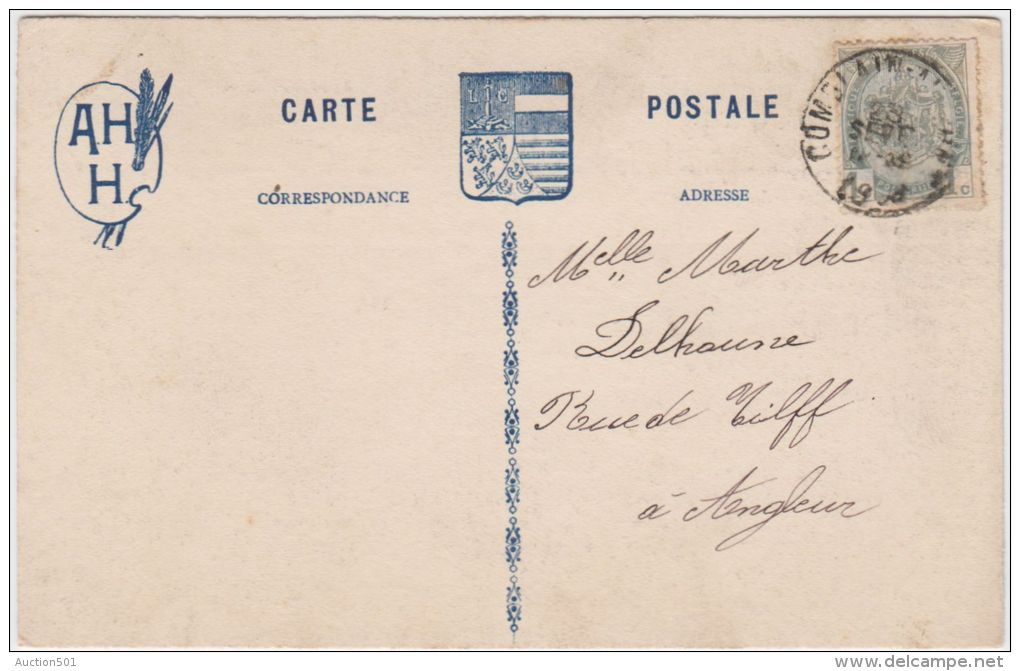 AH
H
CARTE
POSTALE
L G
CORRESPONDANCE
ADRESSE
23
SEPT
Melle Marthe
Delhaune
Rue de Tilff
à Angleur
Auction501
delcampe.net